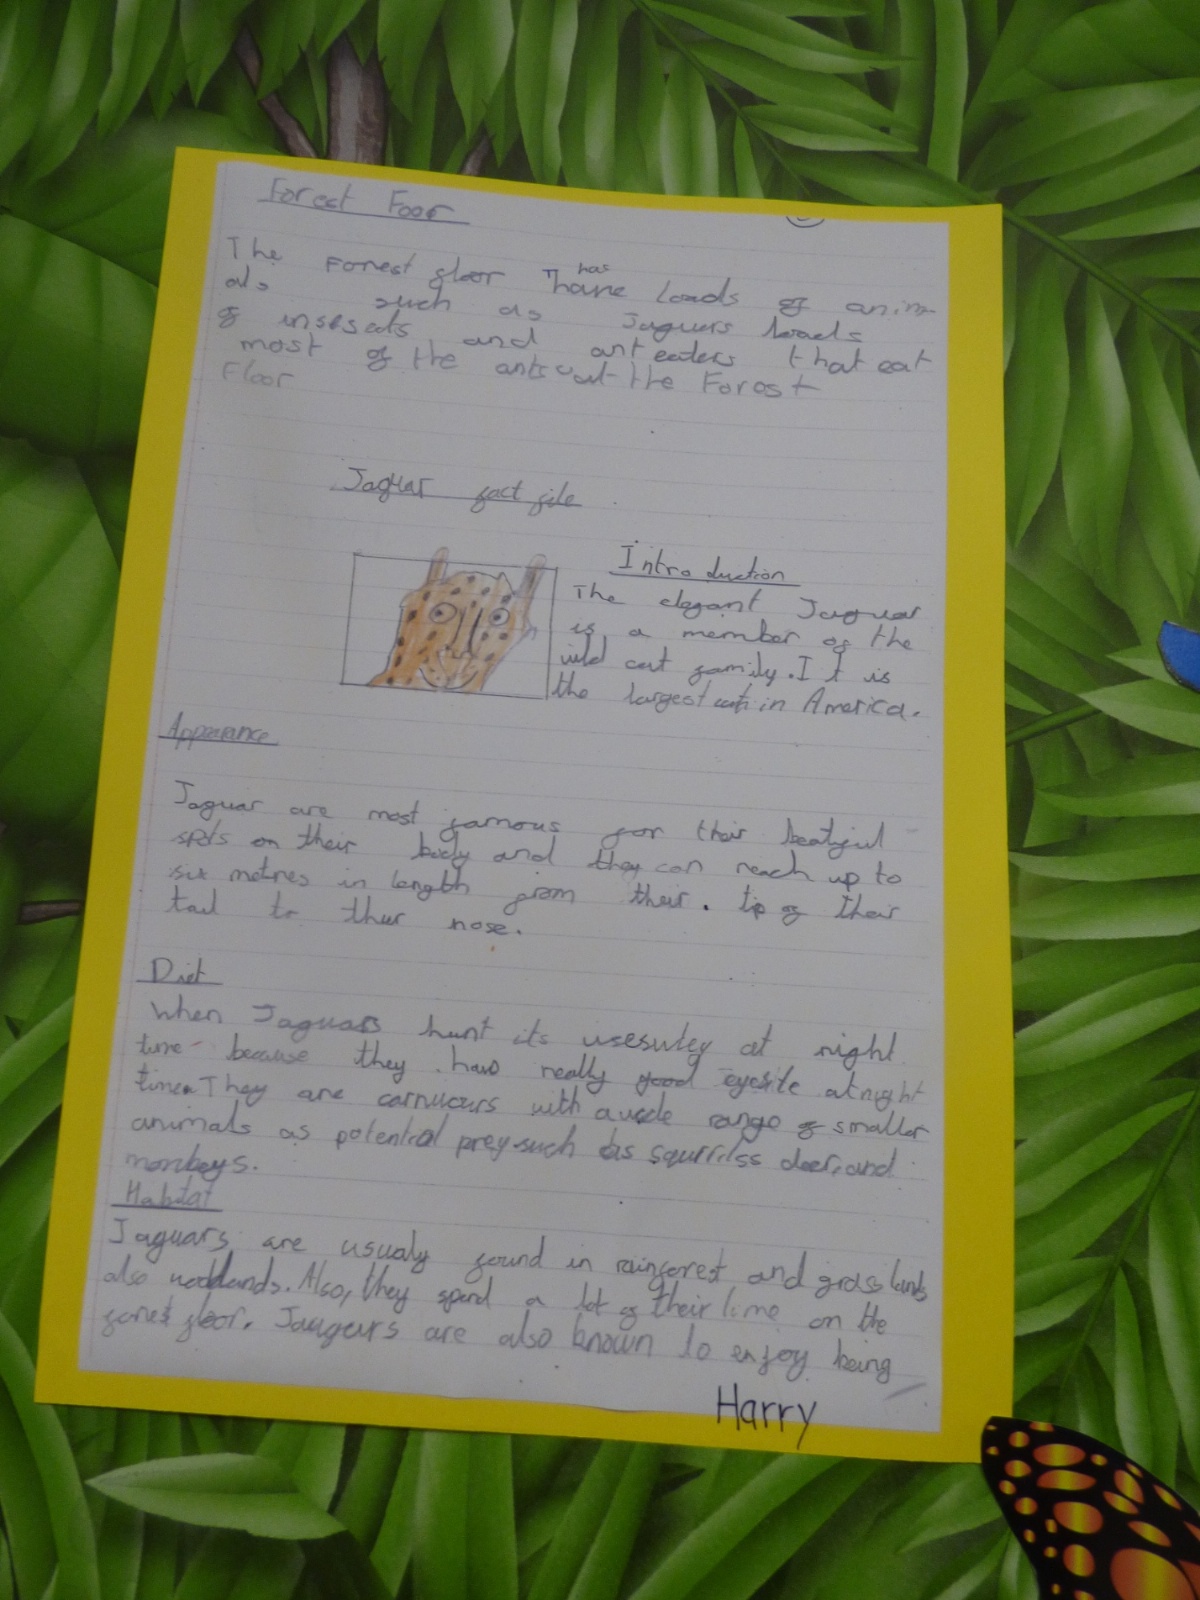 Forest Foor
The Forest floor has loads of anim
als such as Jaguars loads
of insescts and ant eaters that eat
most of the ants out the Forest
Floor
Jaguar fact file
Introduction
The elegant Jaguar
is a member of the
wild cat family. It is
the largest cat in America.
Appearance
Jaguar are most famous for their beatyiul
spots on their body and they can reach up to
six metres in length from their. tip of their
tail to their nose.
Diet
When Jaguars hunt its usesuley at night
time because they have really good eyesite at night
time. They are carnucurs with a wide range of smaller
animals as potential prey such as squrrilss deer, and
monkeys.
Habitat
Jaguars are usualy found in rainforest and grass lands
also woodlands. Also, they spend a lot of their time on the
forest floor. Jaugurs are also known to enjoy being
Harry